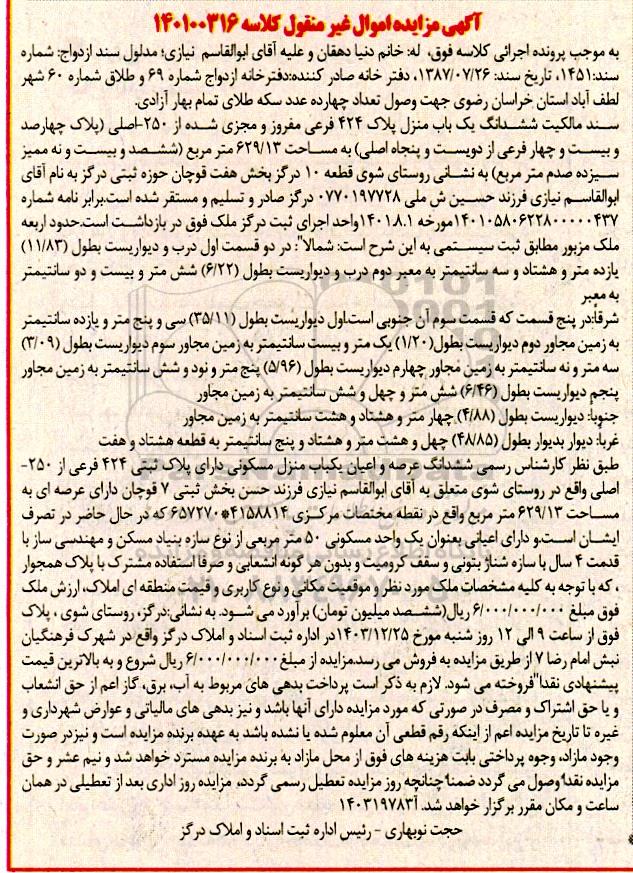 آگهی مزایده اموال غیر منقول کلاسه ۱۴۰۱۰۰۳۱۶
به موجب پرونده اجرائی کلاسه فوق، له: خانم دنیا دهقان و علیه آقای ابوالقاسم نیازی؛ مدلول سند ازدواج: شماره
سند:۱۴۵۱، تاریخ سند: ۱۳۸۷/۰۷/۲۶، دفتر خانه صادر کننده:دفترخانه ازدواج شماره ۶۹ و طلاق شماره ۶۰ شهر
لطف آباد استان خراسان رضوی جهت وصول تعداد چهارده عدد سکه طلای تمام بهار آزادی.
سند مالکیت ششدانگ یک باب منزل پلاک ۴۲۴ فرعی مفروز و مجزی شده از ۲۵۰-اصلی (پلاک چهارصد
و بیست و چهار فرعی از دویست و پنجاه اصلی) به مساحت ۶۲۹/۱۳ متر مربع (ششصد و بیست و نه ممیز
سیزده صدم متر مربع) به نشانی روستای شوی قطعه ۱۰ درگز بخش هفت قوچان حوزه ثبتی درگز به نام آقای
ابوالقاسم نیازی فرزند حسین ش ملی ۰۷۷۰۱۹۷۷۲۸ درگز صادر و تسلیم و مستقر شده است.برابر نامه شماره
۱۴۰۱۰۵۸۰۶۲۲۸۰۰۰۰۰۴۳۷مورخه ۱۴۰۱.۸.۱واحد اجرای ثبت درگز ملک فوق در بازداشت است.حدود اربعه
ملک مزبور مطابق ثبت سیستمی به این شرح است: شمالا": در دو قسمت اول درب و دیواریست بطول (۱۱/۸۳)
یازده متر و هشتاد و سه سانتیمتر به معبر دوم درب و دیواریست بطول (۶/۲۲) شش متر و بیست و دو سانتیمتر
به معبر
شرقا:در پنج قسمت که قسمت سوم آن جنوبی است.اول دیواریست بطول (۳۵/۱۱) سی و پنج متر و یازده سانتیمتر
به زمین مجاور دوم دیواریست بطول(۱/۲۰) یک متر و بیست سانتیمتر به زمین مجاور سوم دیواریست بطول (۳/۰۹)
سه متر و نه سانتیمتر به زمین مجاور چهارم دیواریست بطول (۵/۹۶) پنج متر و نود و شش سانتیمتر به زمین مجاور
پنجم دیواریست بطول (۶/۴۶) شش متر و چهل و شش سانتیمتر به زمین مجاور
جنوبا: دیواریست بطول (۴/۸۸) چهار متر و هشتاد و هشت سانتیمتر به زمین مجاور
غربا: دیوار بدیوار بطول (۴۸/۸۵) چهل و هشت متر و هشتاد و پنج سانتیمتر به قطعه هشتاد و هفت
طبق نظر کارشناس رسمی ششدانگ عرصه و اعیان یکباب منزل مسکونی دارای پلاک ثبتی ۴۲۴ فرعی از ۲۵۰-
اصلی واقع در روستای شوی متعلق به آقای ابوالقاسم نیازی فرزند حسن بخش ثبتی ۷ قوچان دارای عرصه ای به
مساحت ۶۲۹/۱۳ متر مربع واقع در نقطه مختصات مرکزی ۴۱۵۸۸۱۴*۶۵۷۲۷۰ که در حال حاضر در تصرف
ایشان است.و دارای اعیانی بعنوان یک واحد مسکونی ۵۰ متر مربعی از نوع سازه بنیاد مسکن و مهندسی ساز با
قدمت ۴ سال با سازه شناژ بتونی و سقف کرومیت و بدون هر گونه انشعابی و صرفا استفاده مشترک با پلاک همجوار
، که با توجه به کلیه مشخصات ملک مورد نظر و موقعیت مکانی و نوع کاربری و قیمت منطقه ای املاک، ارزش ملک
فوق مبلغ ۶/۰۰۰/۰۰۰/۰۰۰ ریال(ششصد میلیون تومان) برآورد می شود. به نشانی:درگز، روستای شوی ، پلاک
فوق از ساعت ۹ الی ۱۲ روز شنبه مورخ ۱۴۰۳/۱۲/۲۵در اداره ثبت اسناد و املاک درگز واقع در شهرک فرهنگیان
نبش امام رضا ۷ از طریق مزایده به فروش می رسد.مزایده از مبلغ۶/۰۰۰/۰۰۰/۰۰۰ ریال شروع و به بالاترین قیمت
پیشنهادی نقدا"فروخته می شود. لازم به ذکر است پرداخت بدهی های مربوط به آب، برق، گاز اعم از حق انشعاب
و یا حق اشتراک و مصرف در صورتی که مورد مزایده دارای آنها باشد و نیز بدهی های مالیاتی و عوارض شهرداری و
غیره تا تاریخ مزایده اعم از اینکه رقم قطعی آن معلوم شده یا نشده باشد به عهده برنده مزایده است و نیزدر صورت
وجود مازاد، وجوه پرداختی بابت هزینه های فوق از محل مازاد به برنده مزایده مسترد خواهد شد و نیم عشر و حق
مزایده نقدا"وصول می گردد ضمنا"چنانچه روز مزایده تعطیل رسمی گردد، مزایده روز اداری بعد از تعطیلی در همان
ساعت و مکان مقرر برگزار خواهد شد. آ۱۴۰۳۱۹۷۸۳
حجت نوبهاری - رئیس اداره ثبت اسناد و املاک درگز